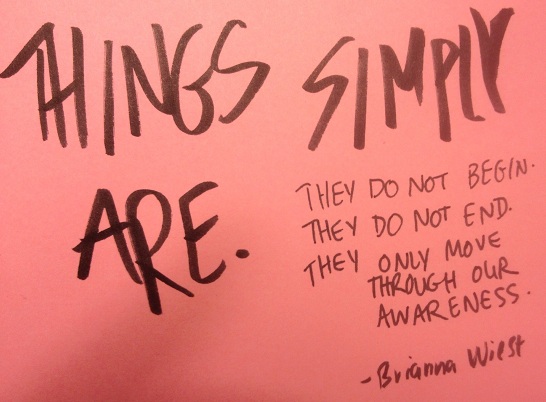 THINGS SIMPLY
ARE.
THEY DO NOT BEGIN.
THEY DO NOT END.
THEY ONLY MOVE
THROUGH OUR
AWARENESS.
-Brianna Wiest